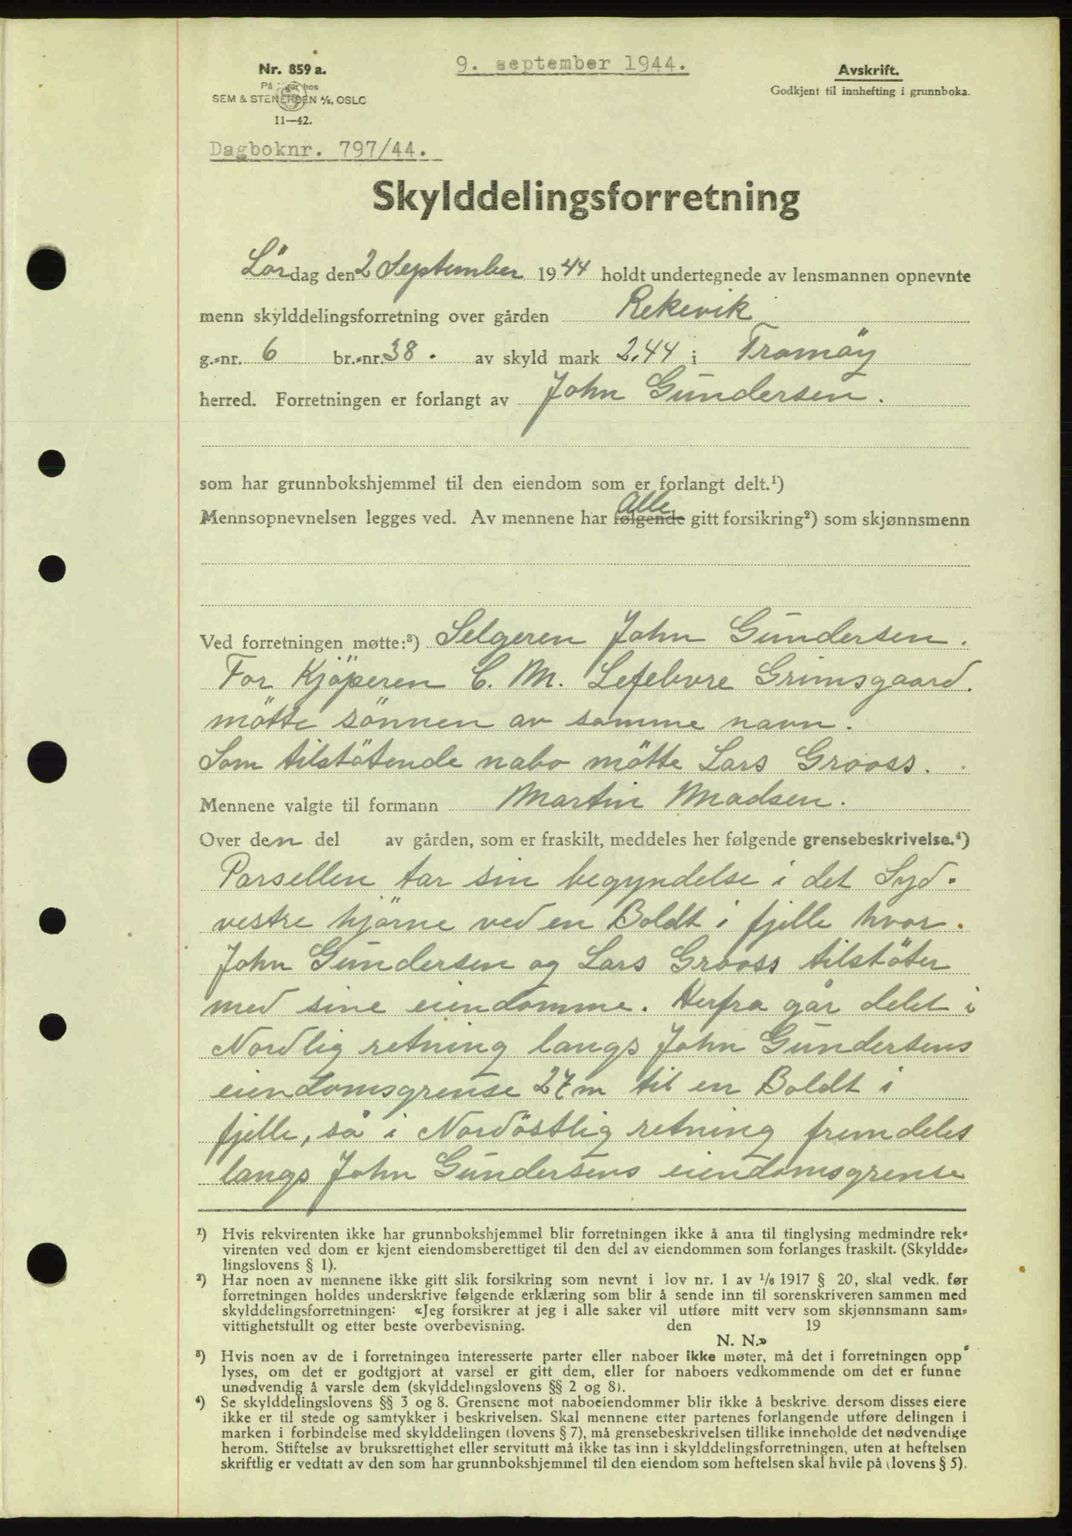 Nr. 859 a.
På lager hos
SEM & STENERSEN A/S, OSLO
11—42.
9. september 1944.
Avskrift.
Godkjent til innhefting i grunnboka.
Dagboknr. 797/44.
Skylddelingsforretning
Lördag den 2 September 1944 holdt undertegnede av lensmannen opnevnte
menn skylddelingsforretning over gården Rekevik
g.-nr. 6 br.-nr. 38. av skyld mark 2,44 i Tromöy
herred. Forretningen er forlangt av John Gundersen.
som har grunnbokshjemmel til den eiendom som er forlangt delt.¹)
Alle
Mennsopnevnelsen legges ved. Av mennene har følgende gitt forsikring²) som skjønnsmenn
Ved forretningen møtte:³) Selgeren John Gundersen.
For Kjöperen C. M. Lefebvre Grimsgaard.
mötte sönnen av samme navn.
Som tilstötende nabo mötte Lars Grooss.
Mennene valgte til formann Martin Madsen.
Over den del av gården, som er fraskilt, meddeles her følgende grensebeskrivelse.⁴)
Parsellen tar sin begyndelse i det Syd-
vestre hjörne ved en Boldt i fjelle hvor
John Gundersen og Lars Grooss tilstöter
med sine eiendomme. Herfra går delet i
Nordlig retning langs John Gundersens
eiendomsgrense 27 m til en Boldt i
fjelle, så i Nordöstlig retning fremdeles
langs John Gundersens eiendomsgrense
¹) Hvis rekvirenten ikke har grunnbokshjemmel blir forretningen ikke å anta til tinglysing medmindre rek-
virenten ved dom er kjent eiendomsberettiget til den del av eiendommen som forlanges fraskilt. (Skyldde-
lingslovens § 1).
²) Har noen av mennene ikke gitt slik forsikring som nevnt i lov nr. 1 av 1/8 1917 § 20, skal vedk. før
forretningen holdes underskrive følgende erklæring som blir å sende inn til sorenskriveren sammen med
skylddelingsforretningen: «Jeg forsikrer at jeg i alle saker vil utføre mitt verv som skjønnsmann sam-
vittighetsfullt og etter beste overbevisning. den 19
N. N.»
³) Hvis noen av de i forretningen interesserte parter eller naboer ikke møter, må det i forretningen opp
lyses, om det er godtgjort at varsel er gitt dem, eller for naboers vedkommende om det er funne
unødvendig å varsle dem (skylddelingslovens §§ 2 og 8).
⁴) Se skylddelingslovens §§ 3 og 8. Grensene mot naboeiendommer blir ikke å beskrive dersom disses eiere
ikke er til stede og samtykker i beskrivelsen. Skal mennene etter partenes forlangende utføre delingen i
marken i forbindelse med skylddelingen (lovens § 7), må grensebeskrivelsen tillike inneholde det nødvendige
herom. Stiftelse av bruksrettighet eller servitutt må ikke tas inn i skylddelingsforretningen, uten at heftelsen
skriftlig er vedtatt av den som har grunnbokshjemmel til den eiendom som heftelsen skal hvile på (lovens § 5).